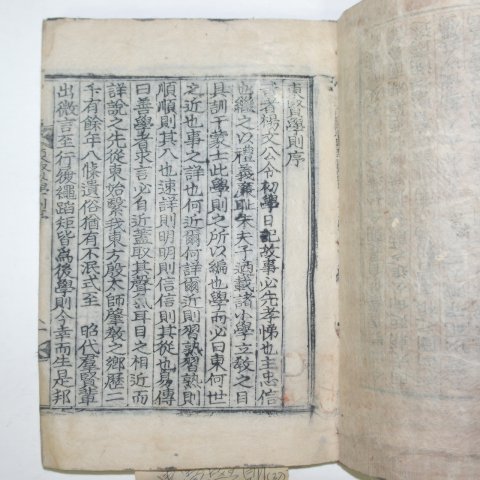 東賢學則序
昔者楊文公令初學日記故事必先孝悌也主忠信
而繼之以禮義廉恥朱夫子適載諸小學立敎之目
其訓于蒙士此學則之所以編也學而必曰東何世
之近也事之詳也何近爾何詳爾近則習熟習熟則
順順則其入也速詳則明明則信信則其從也易傳
曰善學者求言必自近蓋取其聲氣耳目之相近而
詳說之先從東始繫我東方殷太師肇敎之鄕歷二
千有餘年八條遺俗猶有不泯式至 昭代羣賢輩
出微言至行後繩蹈矩皆爲後學則今幸而生是邦